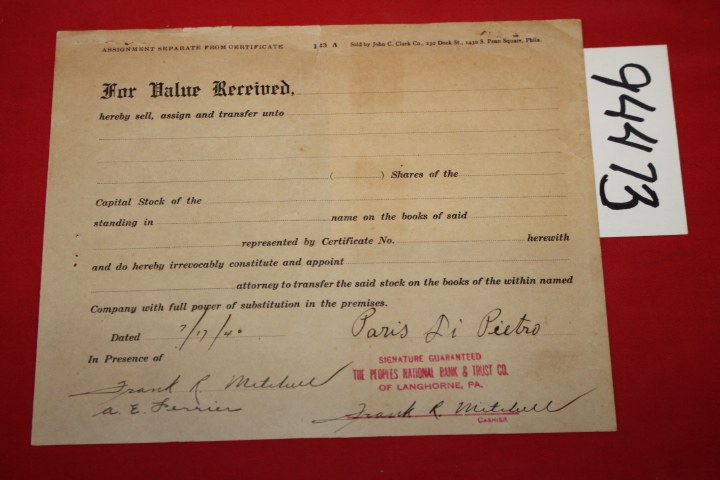 ASSIGNMENT SEPARATE FROM CERTIFICATE 143 A Sold by John C. Clark Co., 230 Dock St., 1430 S. Penn Square, Phila.
For Value Received,
hereby sell, assign and transfer unto
( ) Shares of the
Capital Stock of the
standing in name on the books of said
represented by Certificate No. herewith
and do hereby irrevocably constitute and appoint
attorney to transfer the said stock on the books of the within named
Company with full power of substitution in the premises.
Dated 7/17/40 Paris Di Pietro
In Presence of
SIGNATURE GUARANTEED
THE PEOPLES NATIONAL BANK & TRUST CO.
OF LANGHORNE, PA.
Frank R. Mitchell
a. E. Ferrier
Frank R. Mitchell
CASHIER
94473